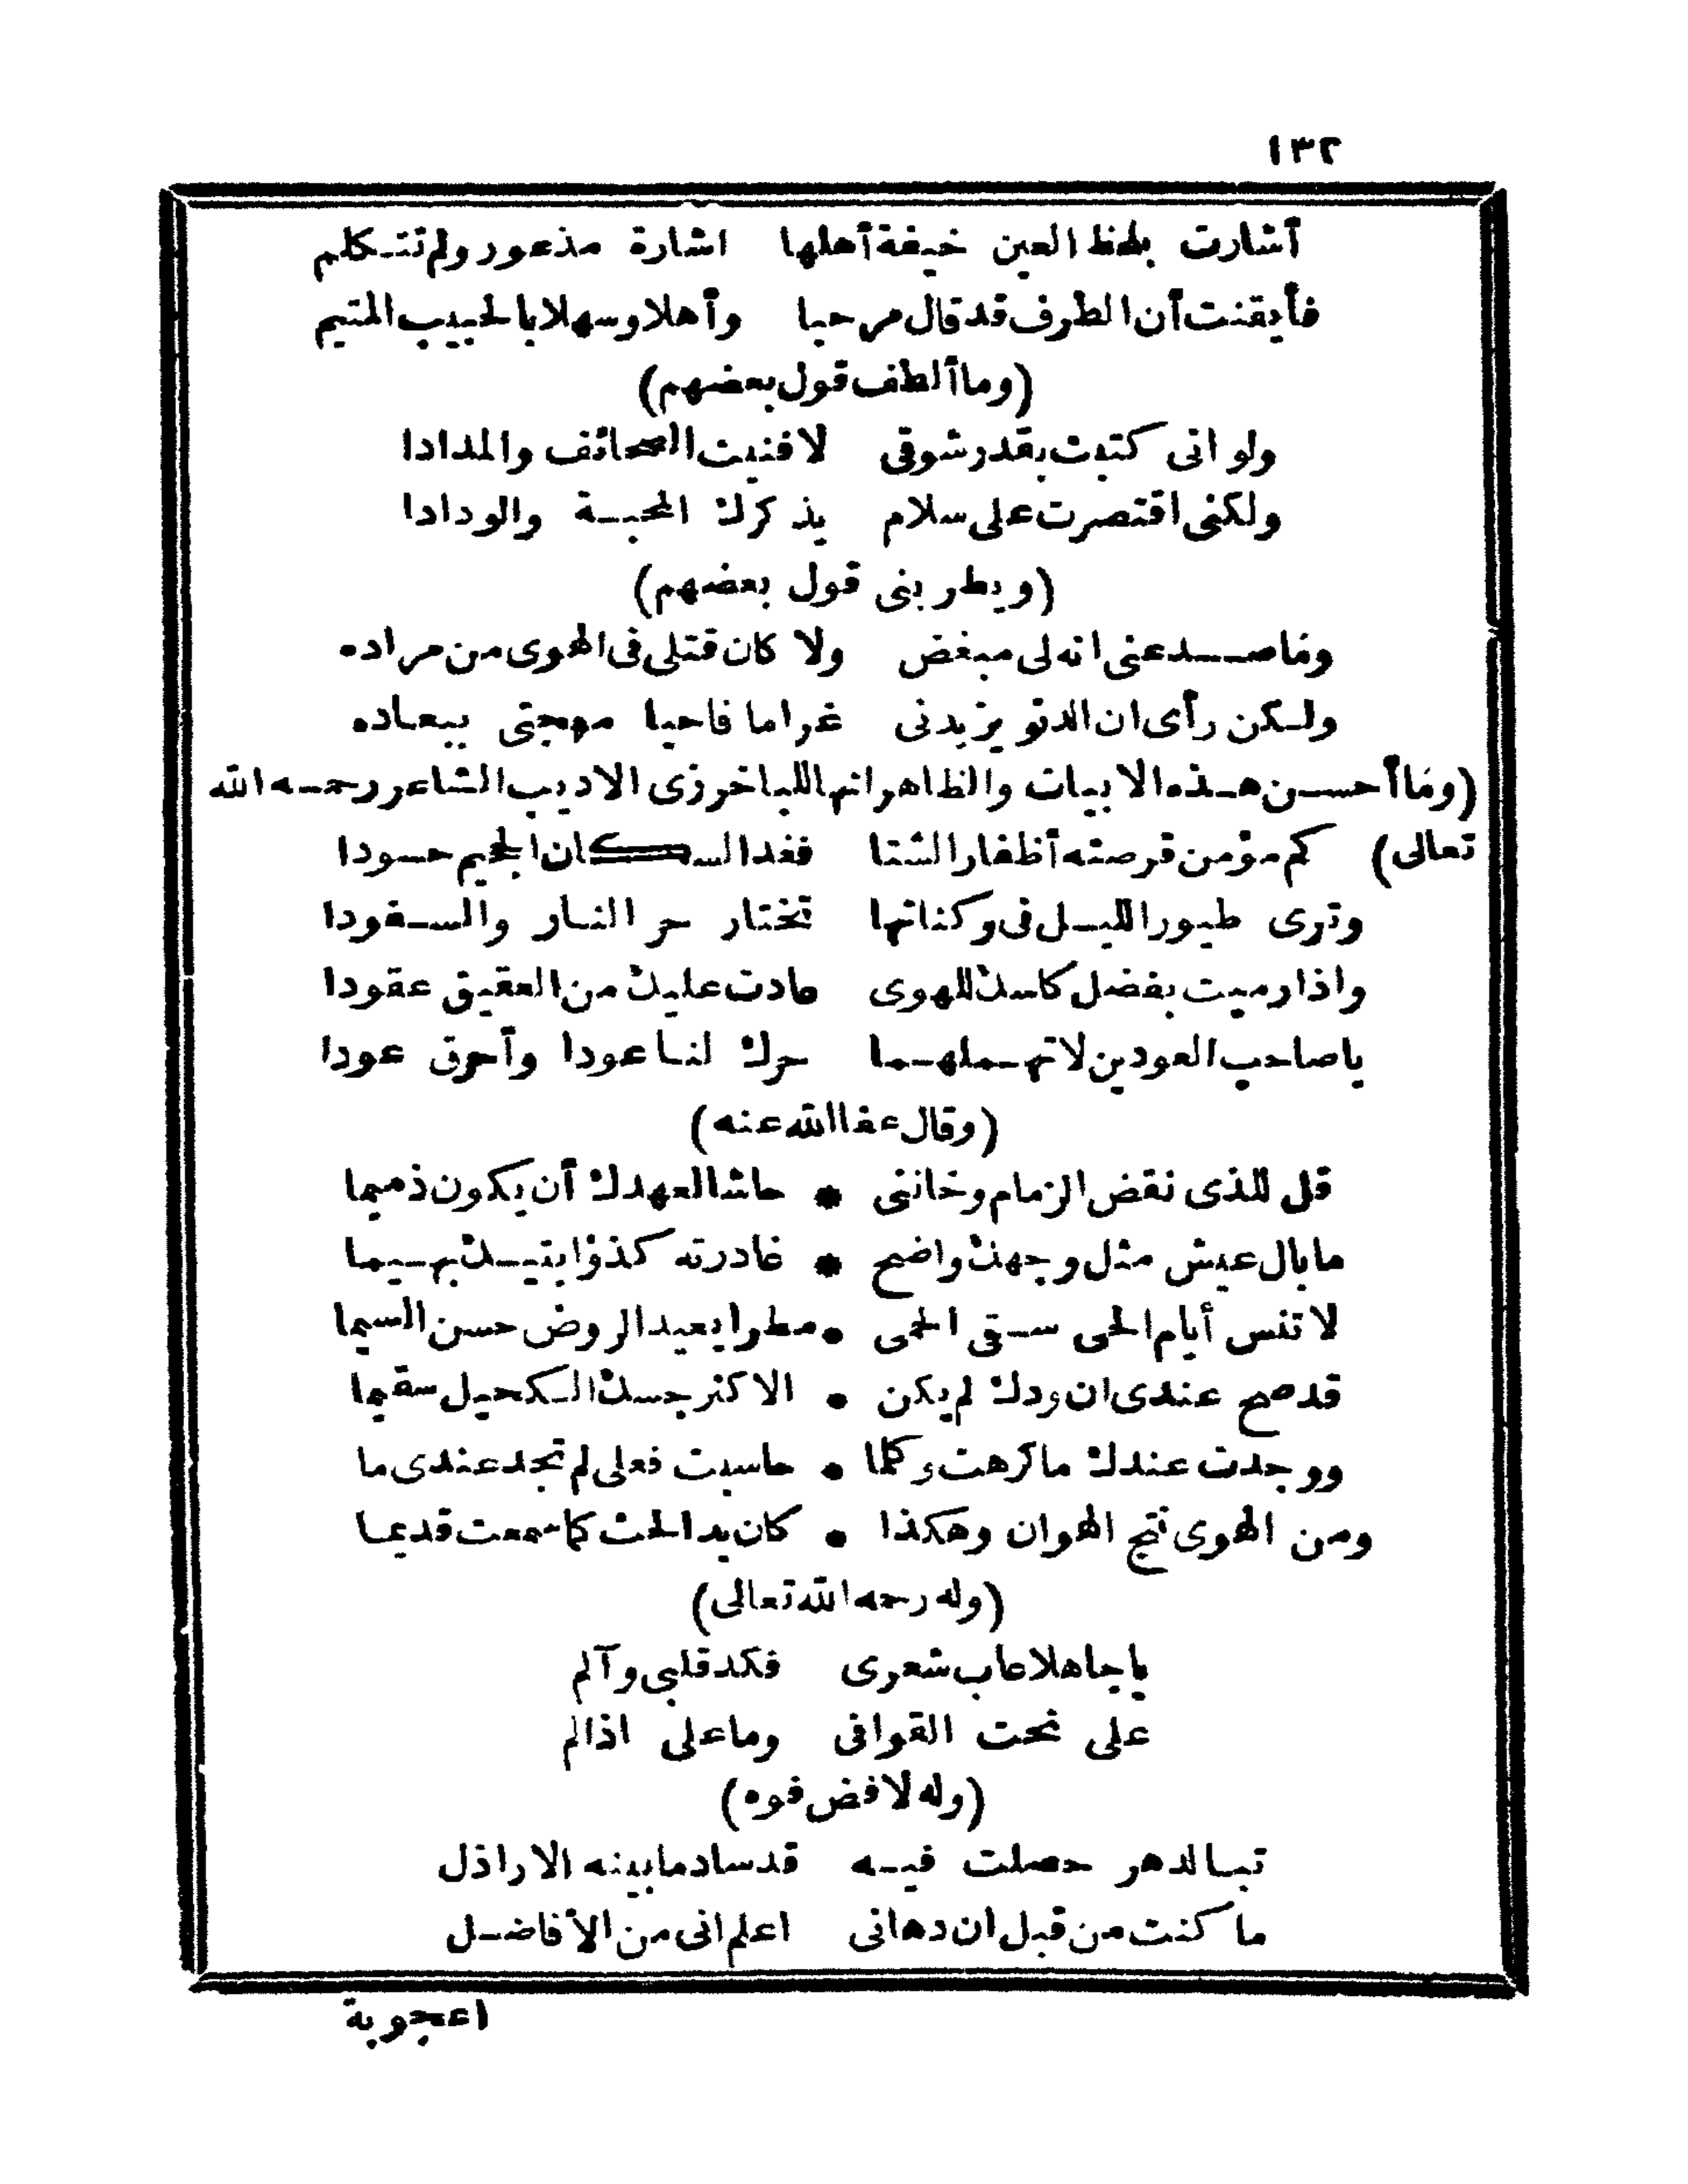 ١٣٢
أشارت بلحظ العين خيفة أهلها اشارة مذعور ولم تتكلم
فأيقنت أن الطرف قد قال مرحبا وأهلا وسهلا بالحبيب المتيم
(وما ألطف قول بعضهم)
ولو انى كتبت بقدر شوقى لافنيت الصحائف والمدادا
ولكنى اقتصرت على سلام يذكرك المحبة والودادا
(ويطربنى قول بعضهم)
وما صد عنى انه لى مبغض ولا كان قتلى فى الهوى من مراده
ولكن رأى ان الدنو يزيدنى غراما فاحيا مهجتى ببعاده
(وما أحسن هذه الابيات والظاهر انها للباخرزى الاديب الشاعر رحمه الله
تعالى) كم مؤمن قرصته أظفار الشتا فغدا لسكان الجحيم حسودا
وترى طيور الليل فى وكناتها تختار حر النار والسفودا
واذا رميت بفضل كاسك للهوى عادت عليك من العقيق عقودا
ياصاحب العودين لا تهملهما حرك لنا عودا وأحرق عودا
(وقال عفا الله عنه)
قل للذى نقض الزمام وخاننى * حاشا لعهدك أن يكون ذميما
ما بال عيش مثل وجهك واضح * غادرته كذؤابتيك بهيما
لا تنس أيام الحى سقى الحمى • مطرا يعيد الروض حسن السيما
قد صح عندى ان ودك لم يكن • الا كنرجسك الكحيل سقيما
ووجدت عندك ما كرهت وكلما • حاسبت فعلى لم تجد عندى ما
ومن الهوى نتج الهوان وهكذا • كان بدا لحث كما سمعت قديما
(وله رحمه الله تعالى)
ياجاهلا عاب شعرى فكد قلبى وآلم
على نحت القوافى وما على اذا لم
(وله لا فض فوه)
تبا لدهر حصلت فيه قد ساد ما بينه الاراذل
ما كنت من قبل ان دهانى اعلم انى من الأفاضل
اعجوبة